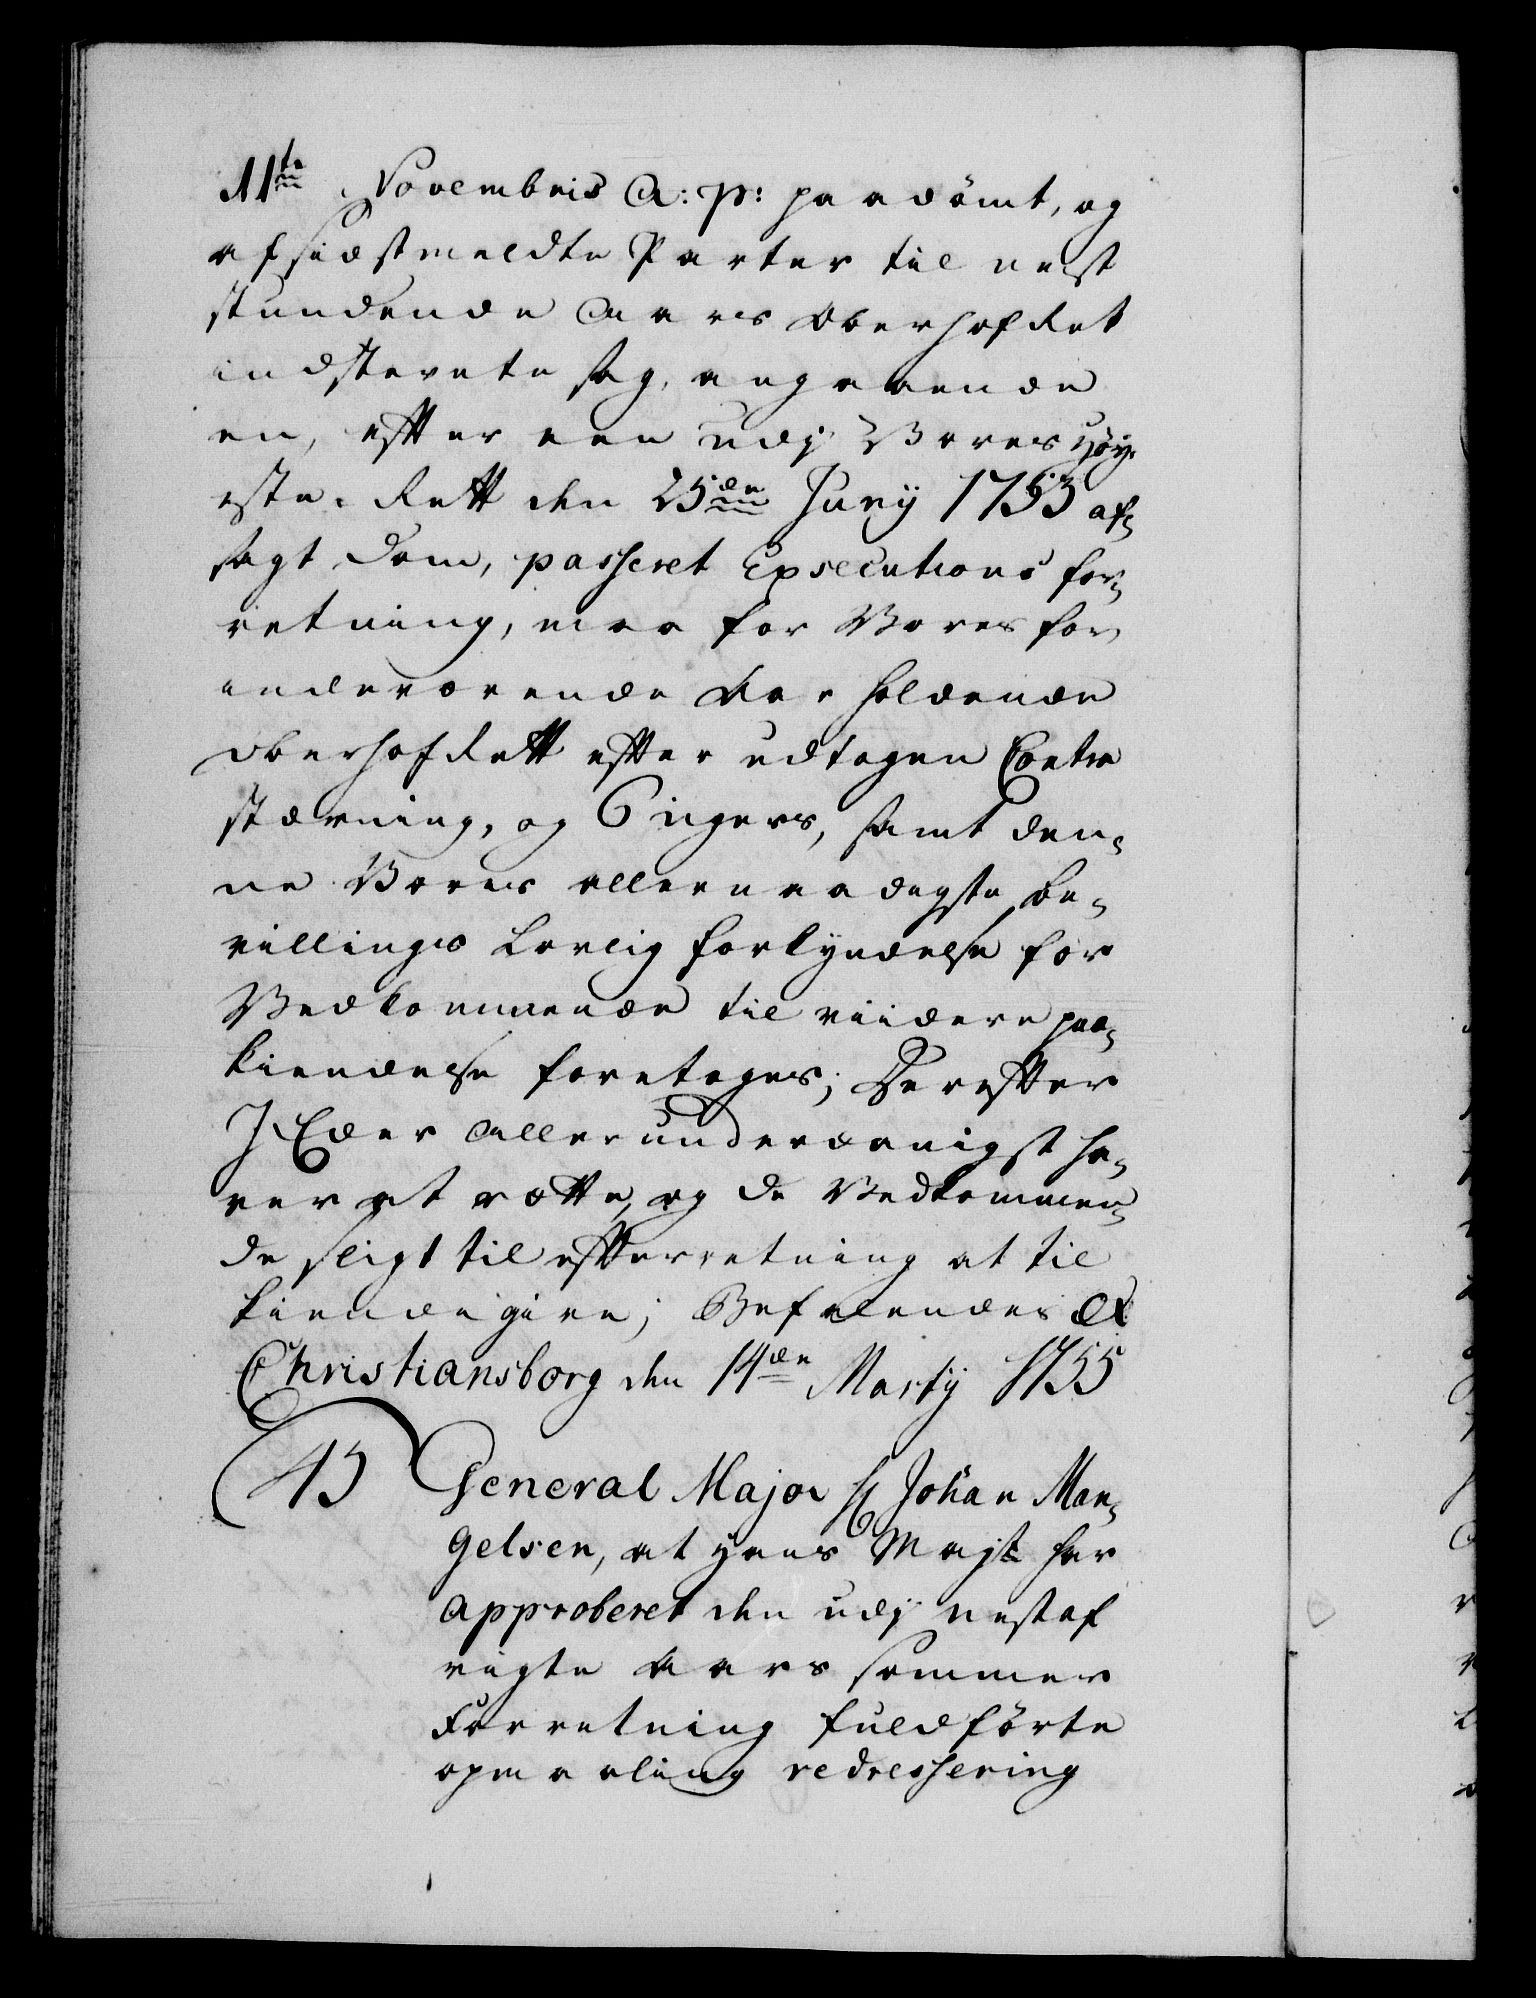 11te Novembris A: p: paadömt, og
af sidstmeldte Parter til nest
stundende Aars Oberhofret
indstevnte sag, angaaende
en, efter een udj Vores Höy-
este-Rett den 25de Junÿ 1753 af-
sagt Dom, passeret Executions for-
retning, maa for Vores for
indeværende Aar holdende
Oberhofrett efter udtagen Contra
stævning, og Gingers, samt den-
ne Vores allernaadigste be-
villings Lovlig forkyndelse for
Vedkommende til viidere paa-
kiendelse foretages; Derefter
I Eder allerunderdanigst ha-
ver at rætte, og de Vedkommen-
de sligt til efterretning at til
kiende give; Befalendes &c
Christiansborg den 14de Martÿ 1755
45 General Major Hr Johan Man-
gelsen, at Hans Mayst har
approberet den udj nestaf
vigte Aars sommer
Forretning fuldförte
opmaaling redressering